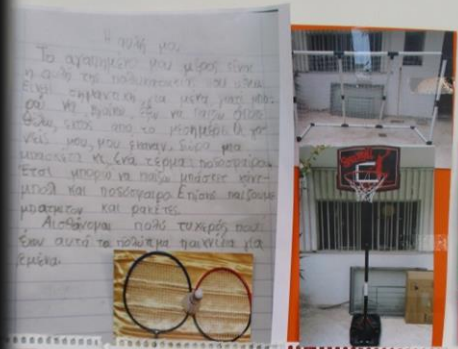 Η αυλή μου
Το αγαπημένο μου μέρος είναι
η αυλή της πολυκατοικίας μου είναι
σημαντική για μένα γιατί μπο-
ρώ να να παίξω όποτε
θέλω, εκτός από το μεσημέρι. Οι γο-
νείς μου, μου έκαναν δώρο μια
μπασκέτα κι ένα τέρμα ποδοσφαίρου
Έτσι μπορώ να παίζω μπάσκετ
και ποδόσφαιρο Επίσης παίζουμε
μπάτμιντον και ρακέτες.
Αισθάνομαι πολύ τυχερός που
έχω αυτά τα πολύτιμα παιχνίδια για
εμένα.